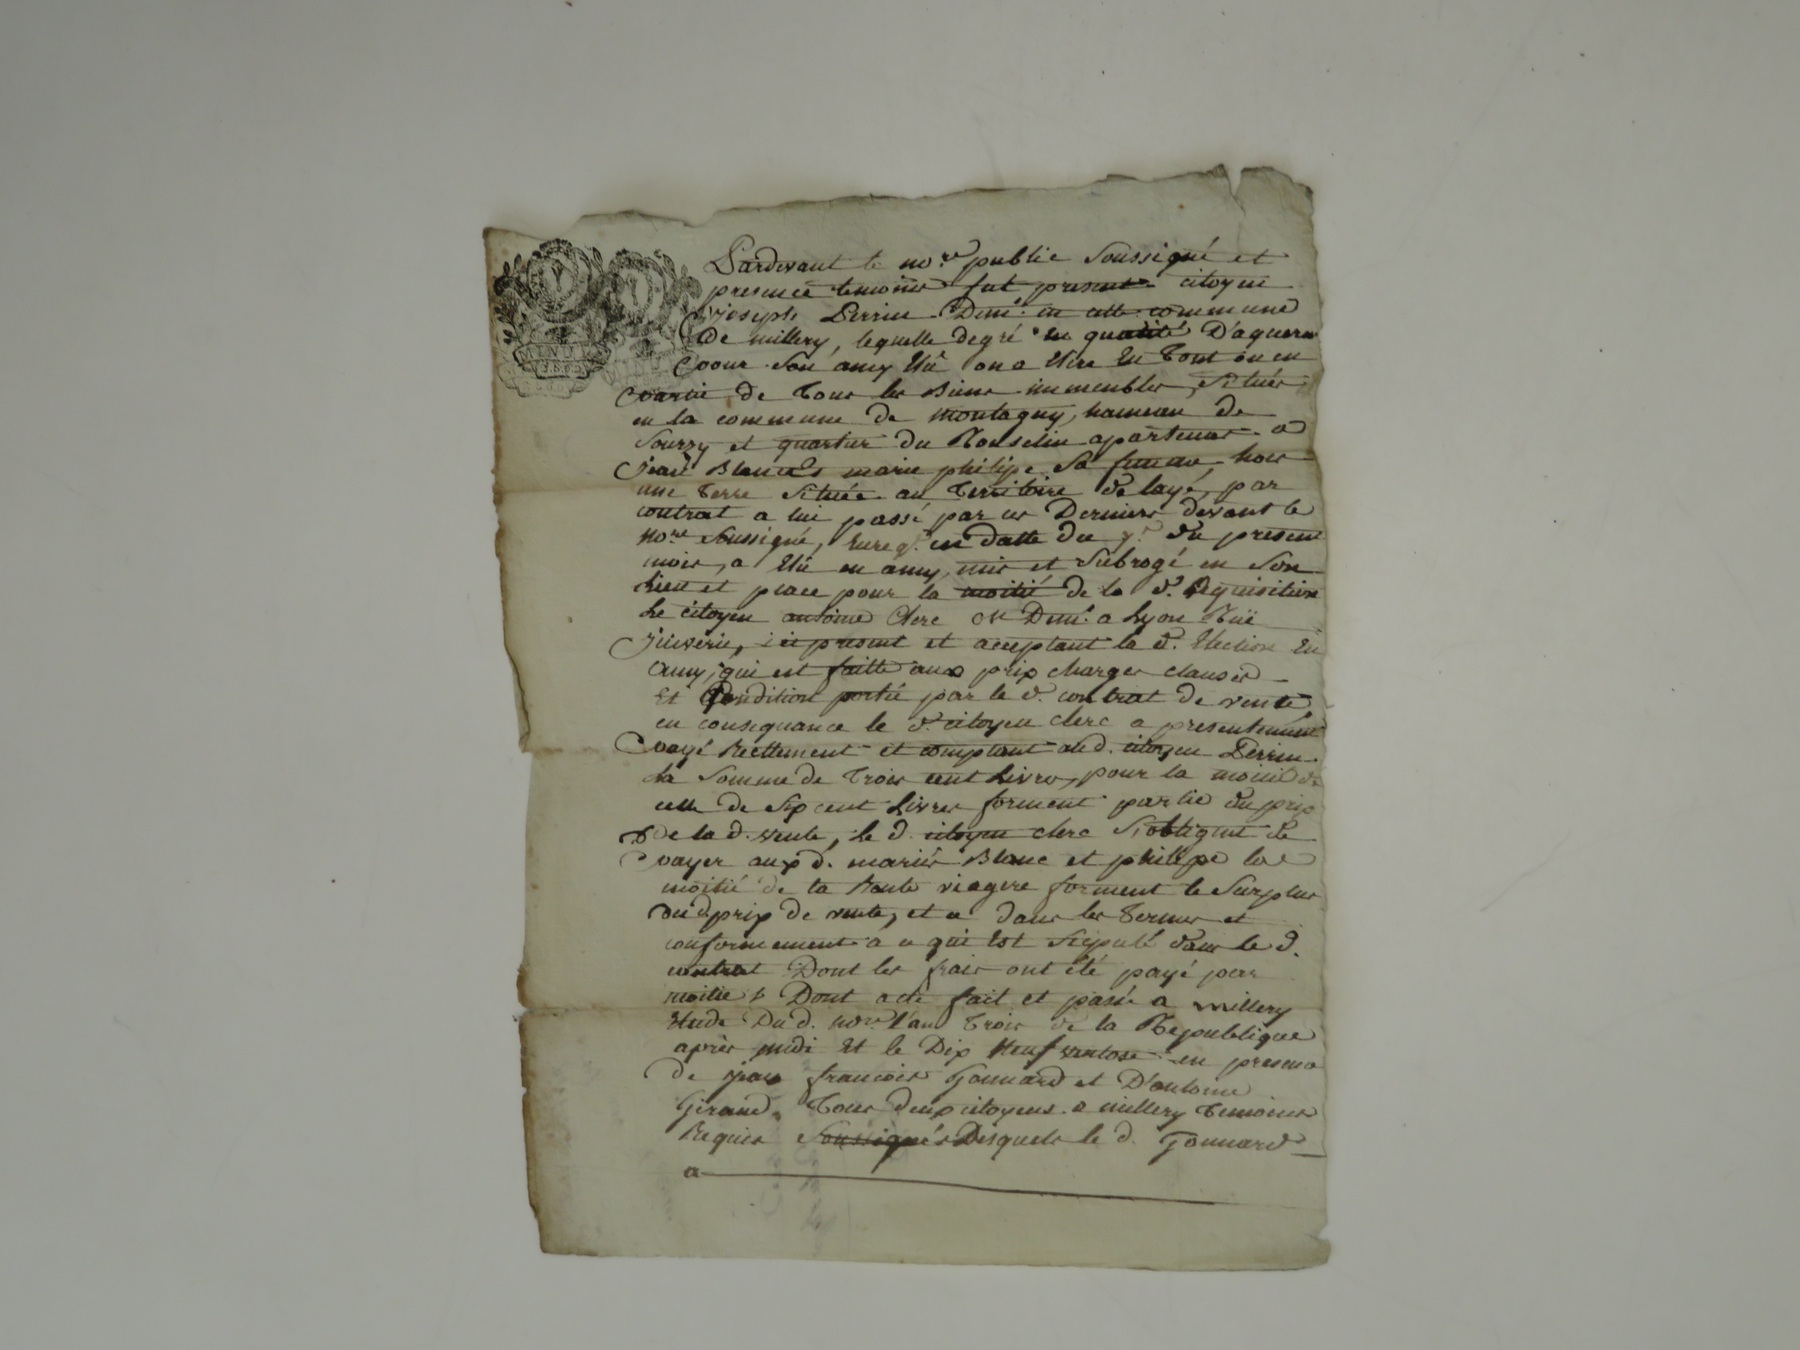 Pardevant le no.re public soussigné et
presence temoins fut present citoyen
joseph Perrin Dem.t en cette commune
De millery, lequelle degré en qualité D'aquereur
pour son amy Elü ou a Elire En Tout ou en
partie de Tous les Biens immeubles, situés
en la commune de montagny, hameau de
Sourzy et quartier du apartenas a
jean Blanc & marie philipe sa femme, hors
une Terre située au Territoire de layé, par
contrat a lui passé par ces Derniers devant le
no.re soussigné, Enreg.é en datte du 7.e du present
mois, a Elü en amy, mis et subrogé en son
Lieu et place pour la moitié de la d. aquisition
Le citoyen antoine Clerc Dem.t a Lyon Rüe
juiverie, ici present et aceptant la d. Election En
amy, qui est faitte aux prix charges clauses
Et Condition portée par le d. contrat de vente
en consequance le d. citoyen clerc a presentement
payé Reellement et comptant aud. citoyen Perrin
La Somme de Trois cent Livres, pour la moitié de
celle de Six cent Livres forment partie du prix
De la d. vente, Le d. citoyen clerc s'obligent de
payer aux d. mariés Blanc et philipe la
moitié de la Rente viagere forment le Surplus
du d. prix de vente, et ce dans les Termes et
conformement a ce qui Est Stipulé dans le d.
contrat Dont les frais ont été payé par
moitié & Dont acte fait et passé a millery
Etude Du d. no.re l'an Trois de la Republique
après midi Et le Dix Neuf ventose en presence
de jean francois Gonnard et D'antoine
Giraud, Tous deux citoyens a millery Temoins
Requis Soussignés Desquels le d. Gonnard
a